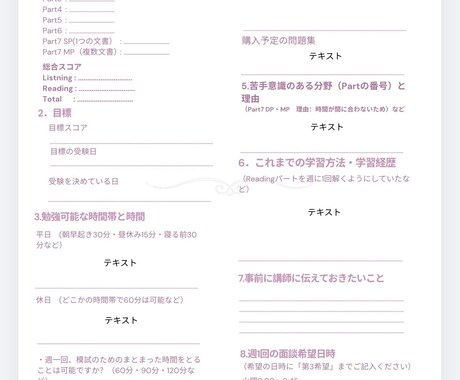 Part4：
Part5：
Part6：
Part7 SP(1つの文書)　：
Part7 MP（複数文書）:
総合スコア
Listning :
Reading :
Total　　:
2．目標
目標スコア
目標の受験日
受験を決めている日
3.勉強可能な時間帯と時間
平日　(朝早起き30分・昼休み15分・寝る前30
分など）
テキスト
休日　(どこかの時間帯で60分は可能など）
テキスト
・週一回、模試のためのまとまった時間をとる
ことは可能ですか？（60分・90分・120分な
購入予定の問題集
テキスト
5.苦手意識のある分野（Partの番号）と
理由
（Part7 DP・MP　理由：時間が間に合わないため）など
テキスト
6．これまでの学習方法・学習経歴
（Readingパートを週に1回解くようにしていたな
ど）
テキスト
7.事前に講師に伝えておきたいこと
8.週1回の面談希望日時
（希望の日時に「第3希望」までご記入ください）